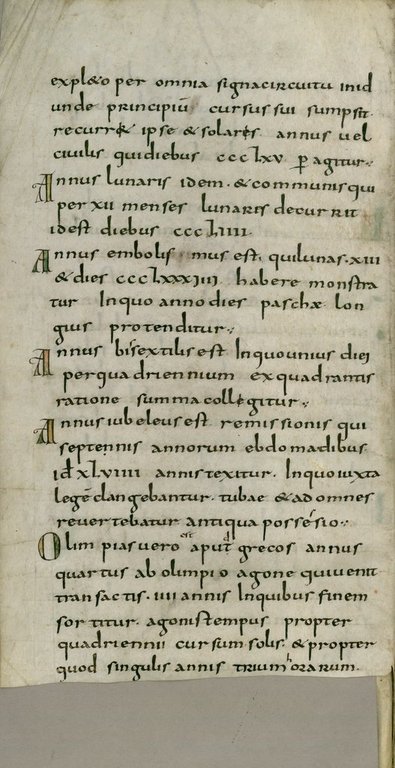 expl&o per omnia signa circuitu inid
unde principiū cursus sui sumpsit.
recurr& ipse & solaris annus uel
ciuilis qui diebus ccclxv ꝑagitur.,
Annus lunaris idem & communis qui
per xii menses lunaris decurrit
idest diebus cccliiii.
Annus embolismus est. qui lunas xiii
& dies ccclxxxiiii habere monstra
tur Inquo anno dies paschæ lon
gius protenditur.,
Annus bisextilis est Inquo unius diei
per quadriennium exquadrantis
ratione summa collegitur.,
Annus iubeleus est remissionis qui
septennis annorum ebdomadibus.
id xlviiii annis texitur. Inquo iuxta
legē clangebantur. tubae & ad omnes
reuertebatur antiqua possessio.,
Olimpias uero est aput grecos annus
quartus ab olimpio agone qui uenit
transactis. iiii annis Inquibus finem
sortitur. agonis tempus propter
quadriennii cursum solis. & propter
quod singulis annis trium horarum.